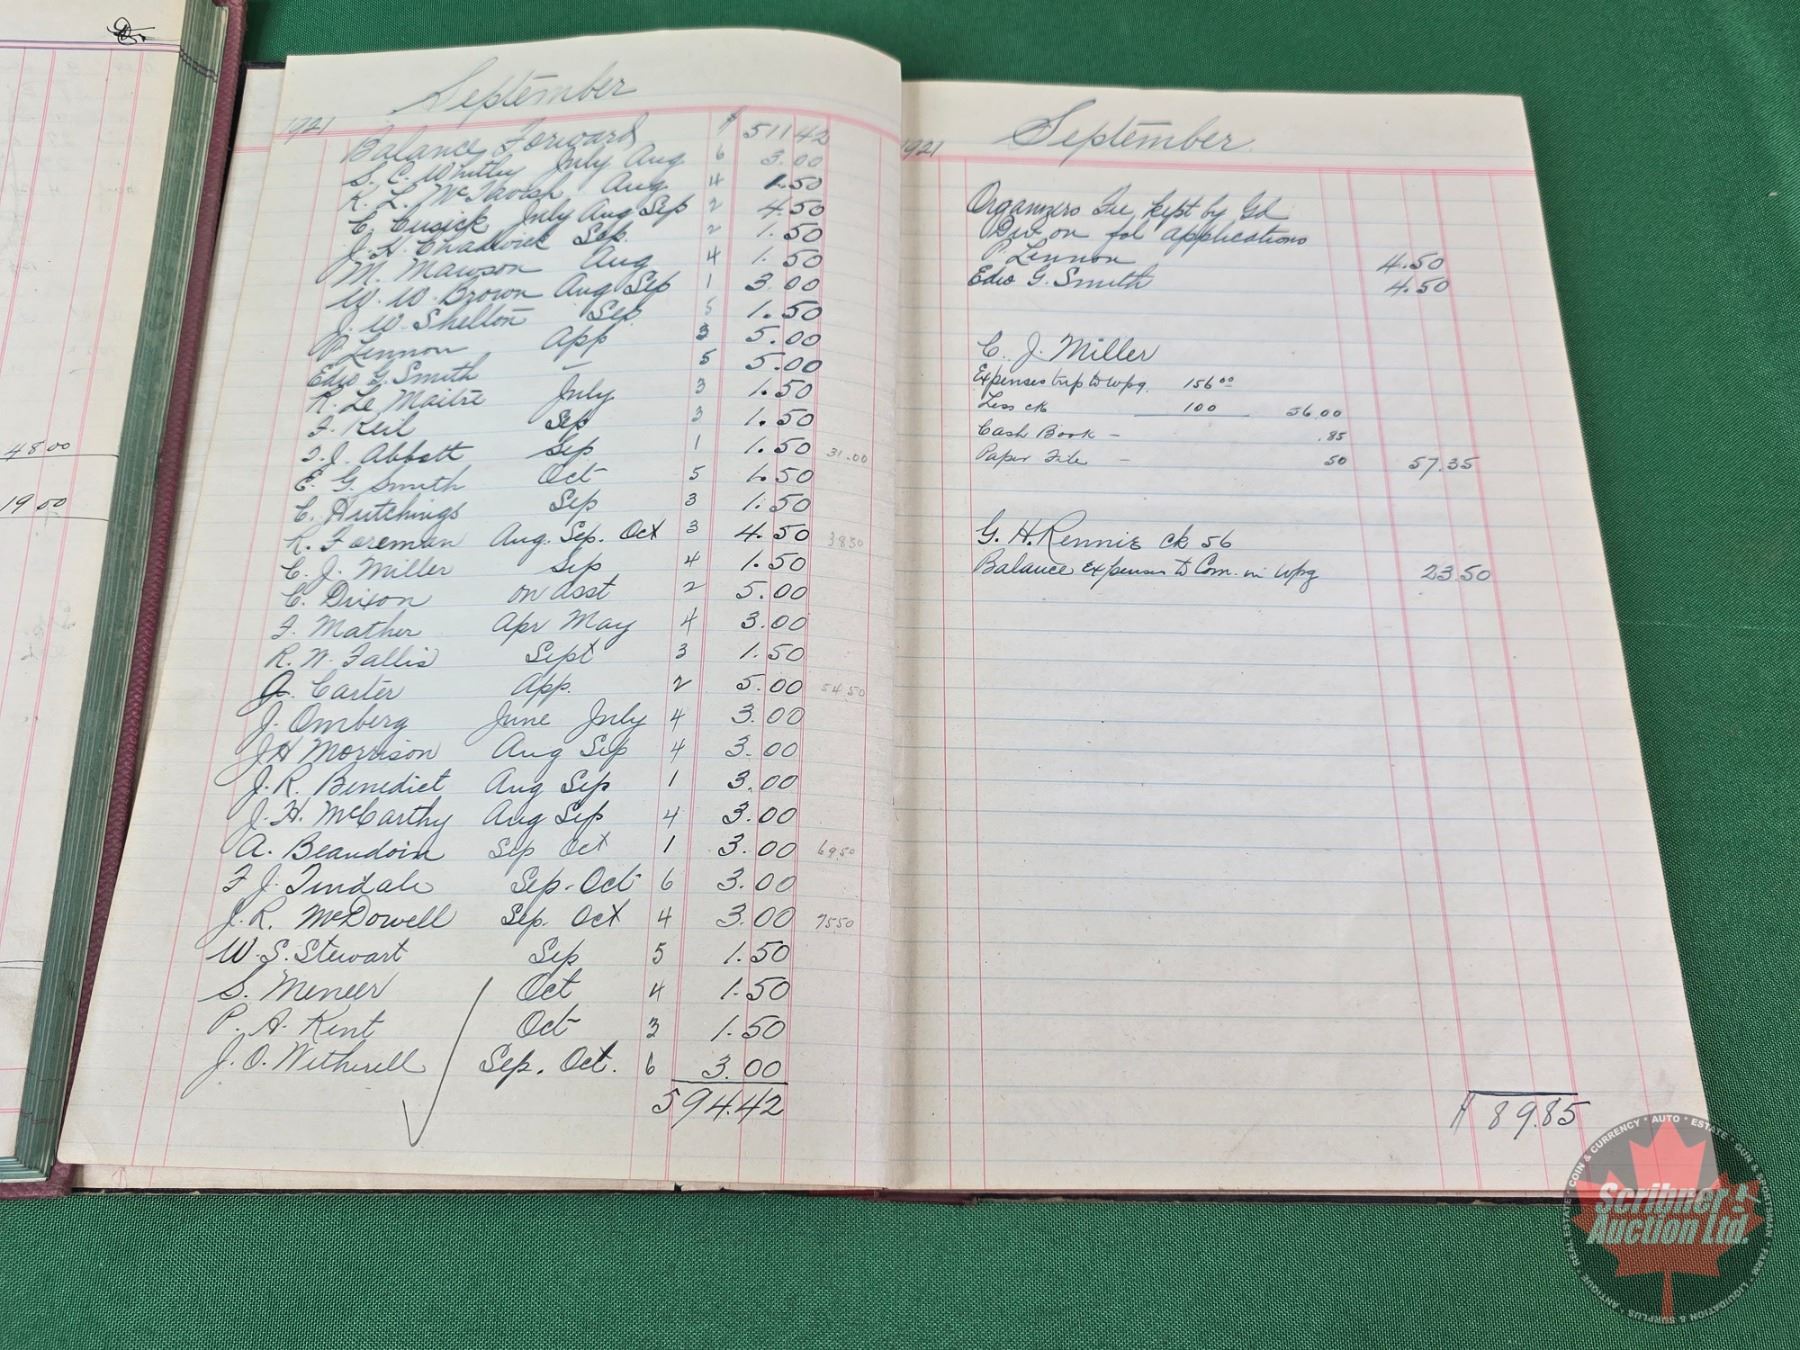 48.00
19 50
September
1921
Balance Forward $ 511 42
S. C. Whitley July Aug 6 3.00
R. L. McTavish Aug. 4 1.50
C. Cusick July Aug Sep 2 4.50
J. H. Chadwick Sep. 2 1.50
M. Mawson Aug 4 1.50
W. W. Brown Aug Sep 1 3.00
J. W. Shelton Sep 5 1.50
P Lennon App 3 5.00
Edw G. Smith — 5 5.00
R. Le Maitre July 3 1.50
F. Keil Sep 3 1.50
T. J. Abbott Sep 1 1.50 31.00
E. G. Smith Oct 5 1.50
C. Hutchings Sep 3 1.50
R. Foreman Aug. Sep. Oct 3 4.50 38 50
C. J. Miller Sep 4 1.50
C. Dixon on asst 2 5.00
F. Mather Apr May 4 3.00
R. W. Fallis Sept 3 1.50
Carter App. 2 5.00 54.50
J. Omberg June July 4 3.00
J H Morrison Aug Sep 4 3.00
J. R. Benedict Aug Sep 1 3.00
J. H. McCarthy Aug Sep 4 3.00
A. Beaudoin Sep Oct 1 3.00 69.50
F J. Tindale Sep. Oct 6 3.00
J. R. McDowell Sep. Oct 4 3.00 75.50
W. S. Stewart Sep 5 1.50
S. Meneer Oct 4 1.50
P. A. Kent Oct 3 1.50
J. O. Witherell Sep. Oct. 6 3.00
594.42
September
1921
Organizers Fee, kept by Gd
Div. on fol applications
P Lennon 4.50
Edw G. Smith 4.50
C. J. Miller
Expenses trip to Wpg. 156 00
Less ck 100 56.00
Cash Book — .85
Paper File — 50 57.35
G. H. Rennie ck 56
Balance expenses to Com. in Wpg 23.50
89.85
Scribner Auction Ltd.
COIN & CURRENCY * AUTO * ESTATE * GUN & SPORTSMAN * FARM * LIQUIDATION & SURPLUS * ANTIQUE * REAL ESTATE